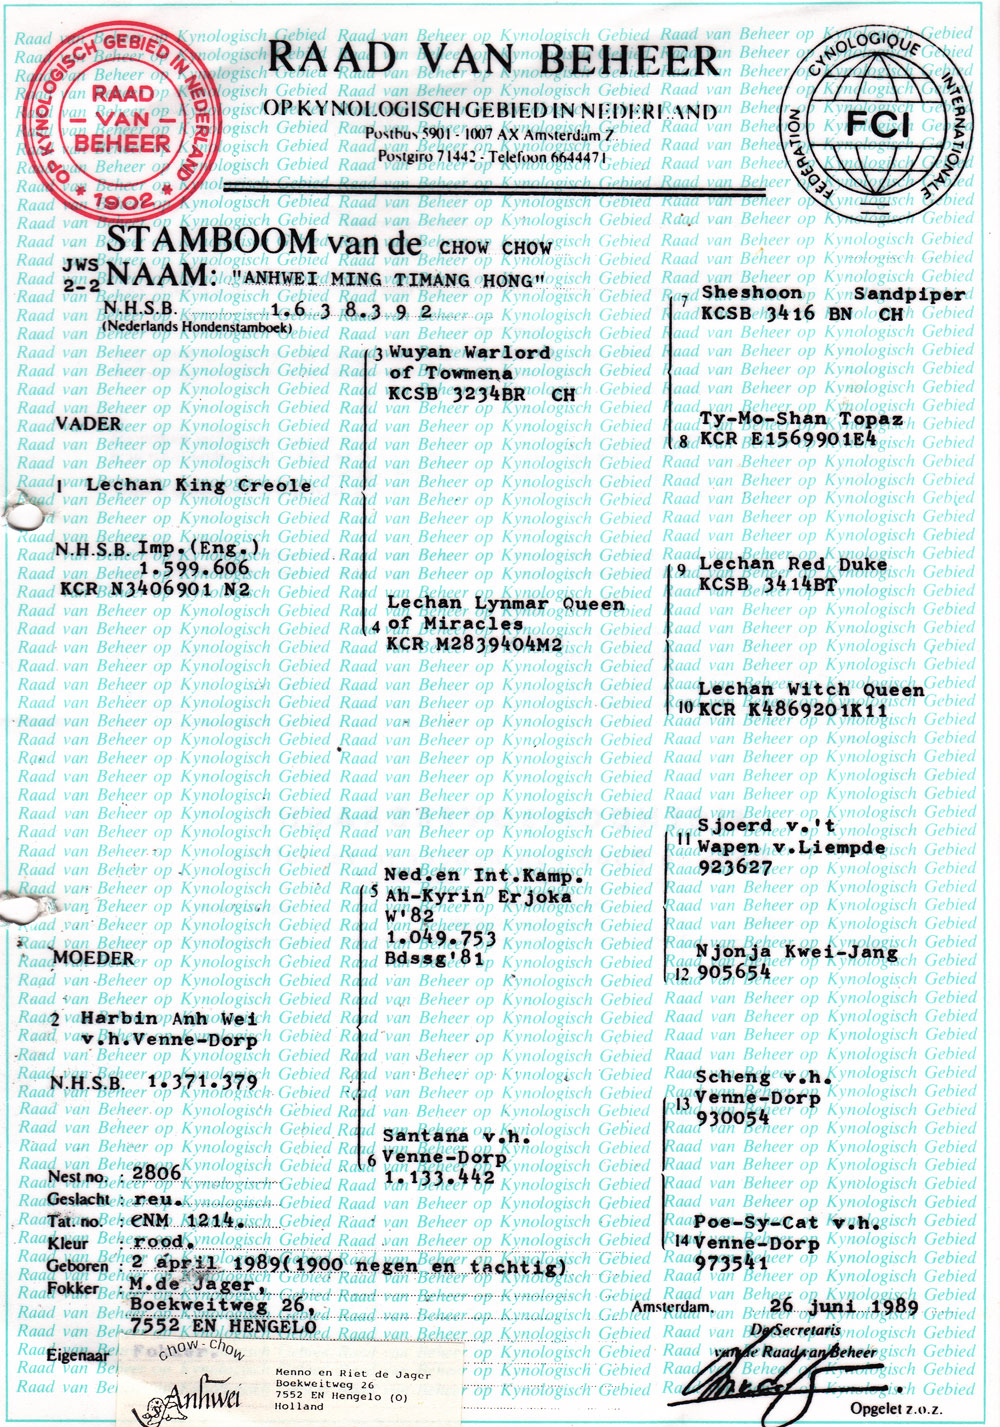 RAAD VAN BEHEER
OP KYNOLOGISCH GEBIED IN NEDERLAND
Postbus 5901 - 1007 AX Amsterdam Z.
Postgiro 71442 - Telefoon 6644471
OP KYNOLOGISCH GEBIED IN NEDERLAND
RAAD
- VAN -
BEHEER
* 1902 *
FEDERATION CYNOLOGIQUE INTERNATIONALE
FCI
STAMBOOM van de CHOW CHOW
JWS
2-2
NAAM: "ANHWEI MING TIMANG HONG"
N.H.S.B. 1.6 3 8.3 9 2
(Nederlands Hondenstamboek)
VADER
1 Lechan King Creole
N.H.S.B. Imp.(Eng.)
1.599.606
KCR N3406901 N2
3 Wuyan Warlord
of Towmena
KCSB 3234BR CH
Lechan Lynmar Queen
4 of Miracles
KCR M2839404M2
7 Sheshoon Sandpiper
KCSB 3416 BN CH
Ty-Mo-Shan Topaz
8 KCR E1569901E4
9 Lechan Red Duke
KCSB 3414BT
Lechan Witch Queen
10 KCR K4869201K11
MOEDER
2 Harbin Anh Wei
v.h.Venne-Dorp
N.H.S.B. 1.371.379
Ned.en Int.Kamp.
5 Ah-Kyrin Erjoka
W'82
1.049.753
Bdssg'81
Santana v.h.
6 Venne-Dorp
1.133.442
Sjoerd v.'t
11 Wapen v.Liempde
923627
Njonja Kwei-Jang
12 905654
Scheng v.h.
13 Venne-Dorp
930054
Poe-Sy-Cat v.h.
14 Venne-Dorp
973541
Nest no. : 2806
Geslacht : reu.
Tat. no. : eNM 1214.
Kleur : rood.
Geboren : 2 april 1989(1900 negen en tachtig)
Fokker : M.de Jager,
Boekweitweg 26,
7552 EN HENGELO
Eigenaar Fokker.
chow-chow
Anhwei
Menno en Riet de Jager
Boekweitweg 26
7552 EN Hengelo (O)
Holland
Amsterdam, 26 juni 1989
De Secretaris
van de Raad van Beheer
Opgelet z.o.z.
Raad van Beheer op Kynologisch Gebied